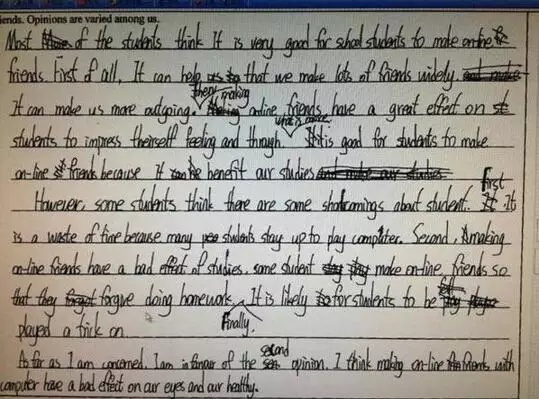 iends. Opinions are varied among us.
Most of the students think It is very good for school students to make on-line
friends. First of all, It can help us that we make lots of friends widely.
It can make us more outgoing. Then, making on-line friends have a great effect on
students to impress theirself feeling and through. What is more, It is good for students to make
on-line friends because It can be benefit our studies
However, some students think there are some shortcomings about student. First, It
is a waste of time because many students stay up to play computer. Second, making
on-line friends have a bad effect of studies, some student make on-line friends so
that they forgive doing homework. Finally, It is likely for students to be
played a trick on.
As far as I am concerned, I am in favour of the second opinion. I think making on-line friends with
computer have a bad effect on our eyes and our healthy.